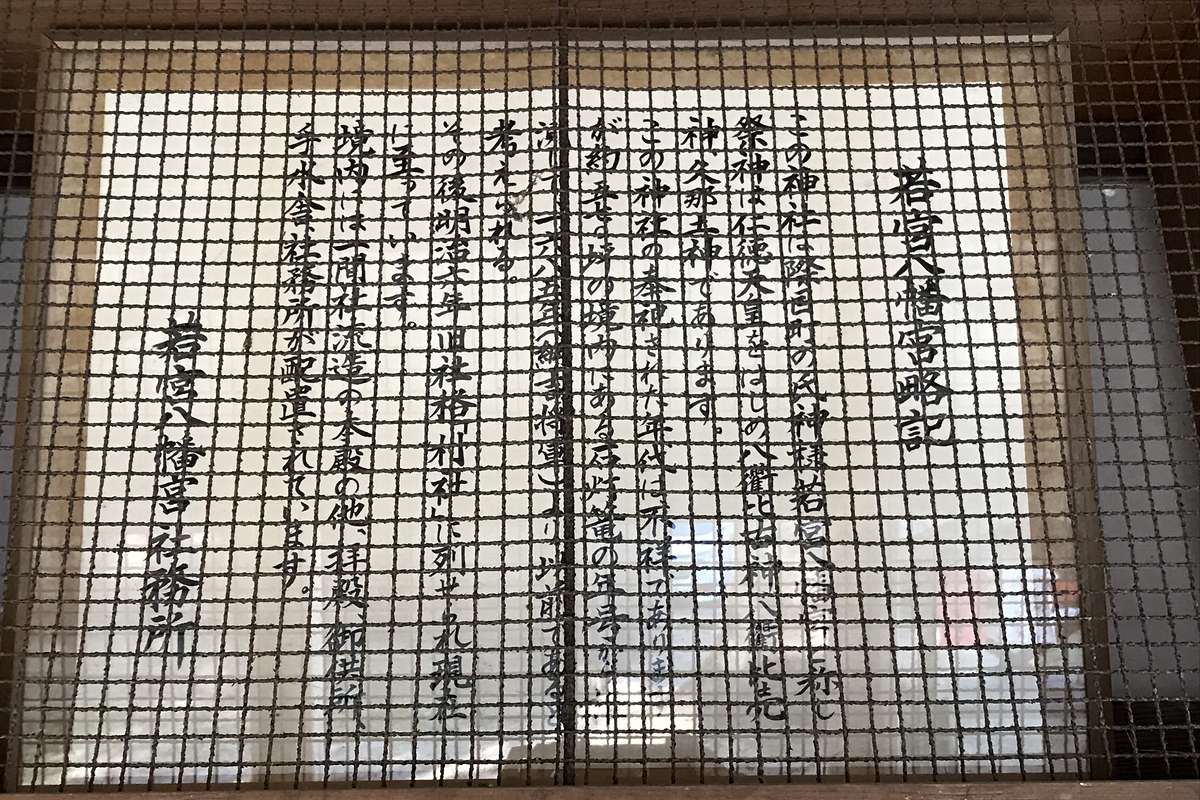 若宮八幡宮略記
この神社は際目町の氏神様若宮八幡宮と称し
祭神は仁徳天皇をはじめ八衢比古神、八衢比売
神、久那土神であります。
この神社の奉祀された年代は不祥であります
が約五百坪の境内にある石灯篭の年号から計
算して一六八五年(綱吉将軍)より以前であると
考えられる。
その後明治六年旧社格「村社」に列せられ現在
に至っています。
境内には一間社流造の本殿の他、拝殿、御供所、
手水舎、社務所が配置されています。
若宮八幡宮社務所